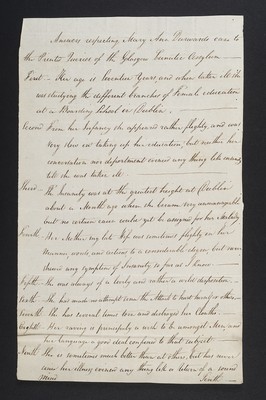 Answers respecting Mary Ann Durwards case to
the Printed Queries of the Glasgow Lunatic Asylum
First - Her age is Seventeen Years, and when taken Ill She
was studying the different branches of Female education
at a Boarding School in Dublin.
Second From her Infancy she appeared rather flighty, and was
very slow in taking up her education, but neither her
conversation nor deportment evinced any thing like insanity
till she was taken Ill.
Third. The Insanity was at the greatest height at Dublin
about a Month ago when she became very unmanageable
but no certain cause could yet be assigned for her Malady
Fourth Her Mother my late Wife was sometimes flighty in her
manner, words and actions to a considerable degree, but never
shewed any symptom of Insanity so far as I know
Fifth She was always of a lively and rather a wild disposition
Sixth She has made no attempt from the Attack to hurt herself or others
Seventh She has several times tore and destroyed her Cloaths
Eighth Her raving is principally a wish to be amongst Men, and
her language a good deal confined to that subject
Ninth She is sometimes much better than at others, but has never
since her illness evinced any thing like a return of a sound
Mind
Tenth